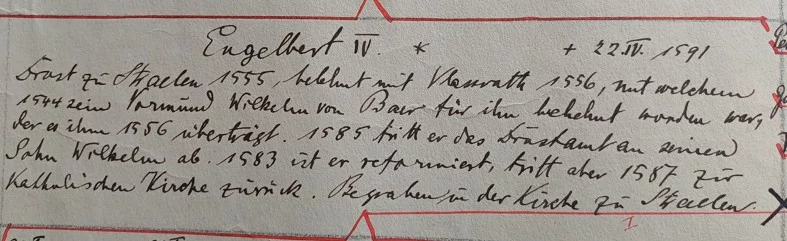 Engelbert IV. * + 22.IV. 1591
Drost zu Straelen 1555, belehnt mit Vlassrath 1556, mit welchem
1544 sein Vormund Wilhelm von Baer für ihn belehnt worden war,
der es ihm 1556 überträgt. 1585 tritt er das Drostamt an seinen
Sohn Wilhelm ab. 1583 ist er reformiert, tritt aber 1587 zur
Katholischen Kirche zurück. Begraben in der Kirche zu Straelen.
I